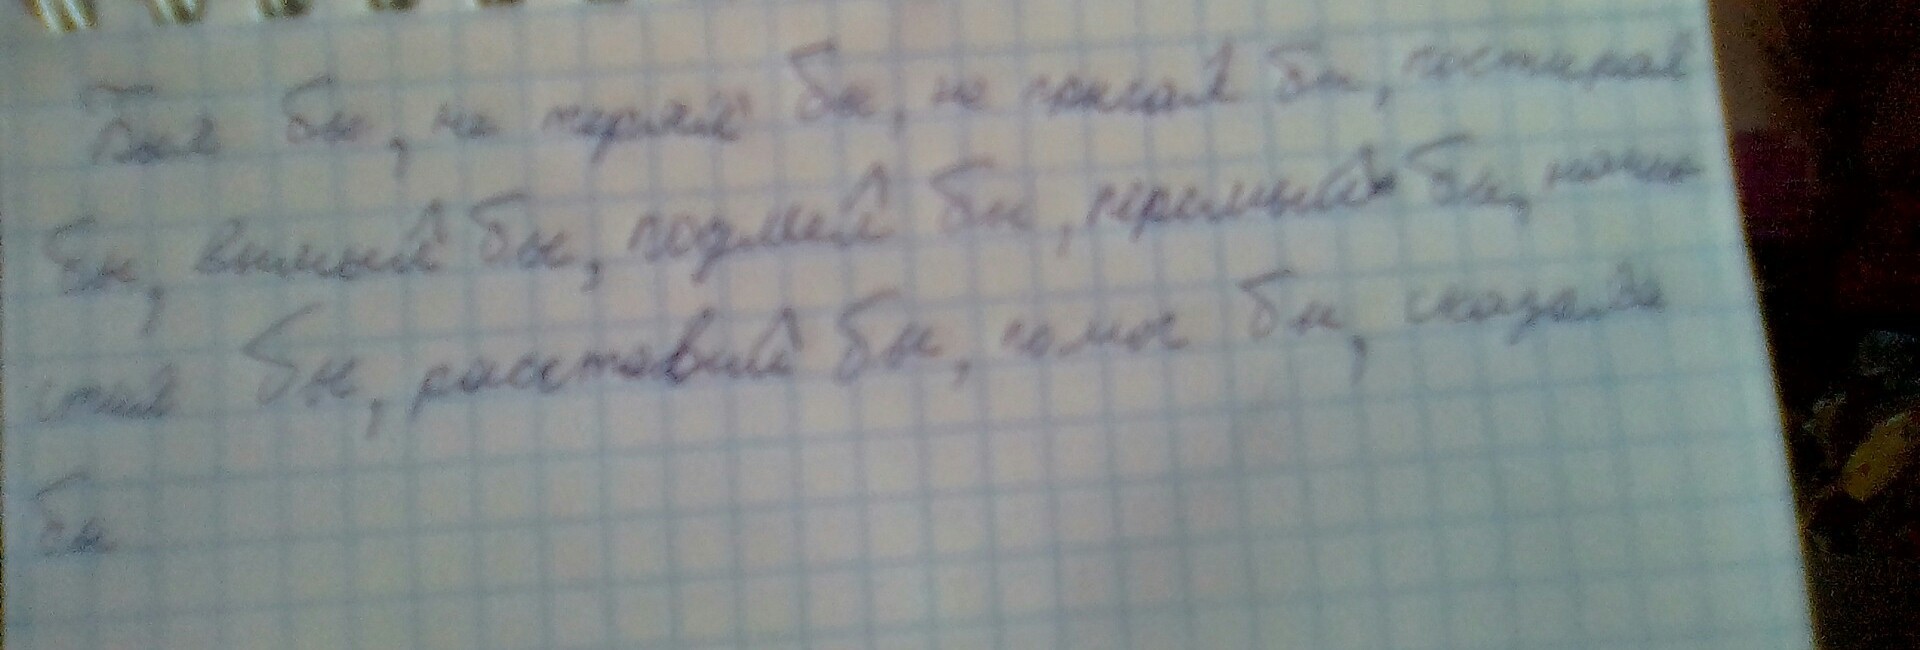 Был бы, не терял бы, не писал бы, постирал
бы, вымыл бы, подмёл бы, перемыл бы, почи
стил бы, расставил бы, помог бы, сказал бы
бы